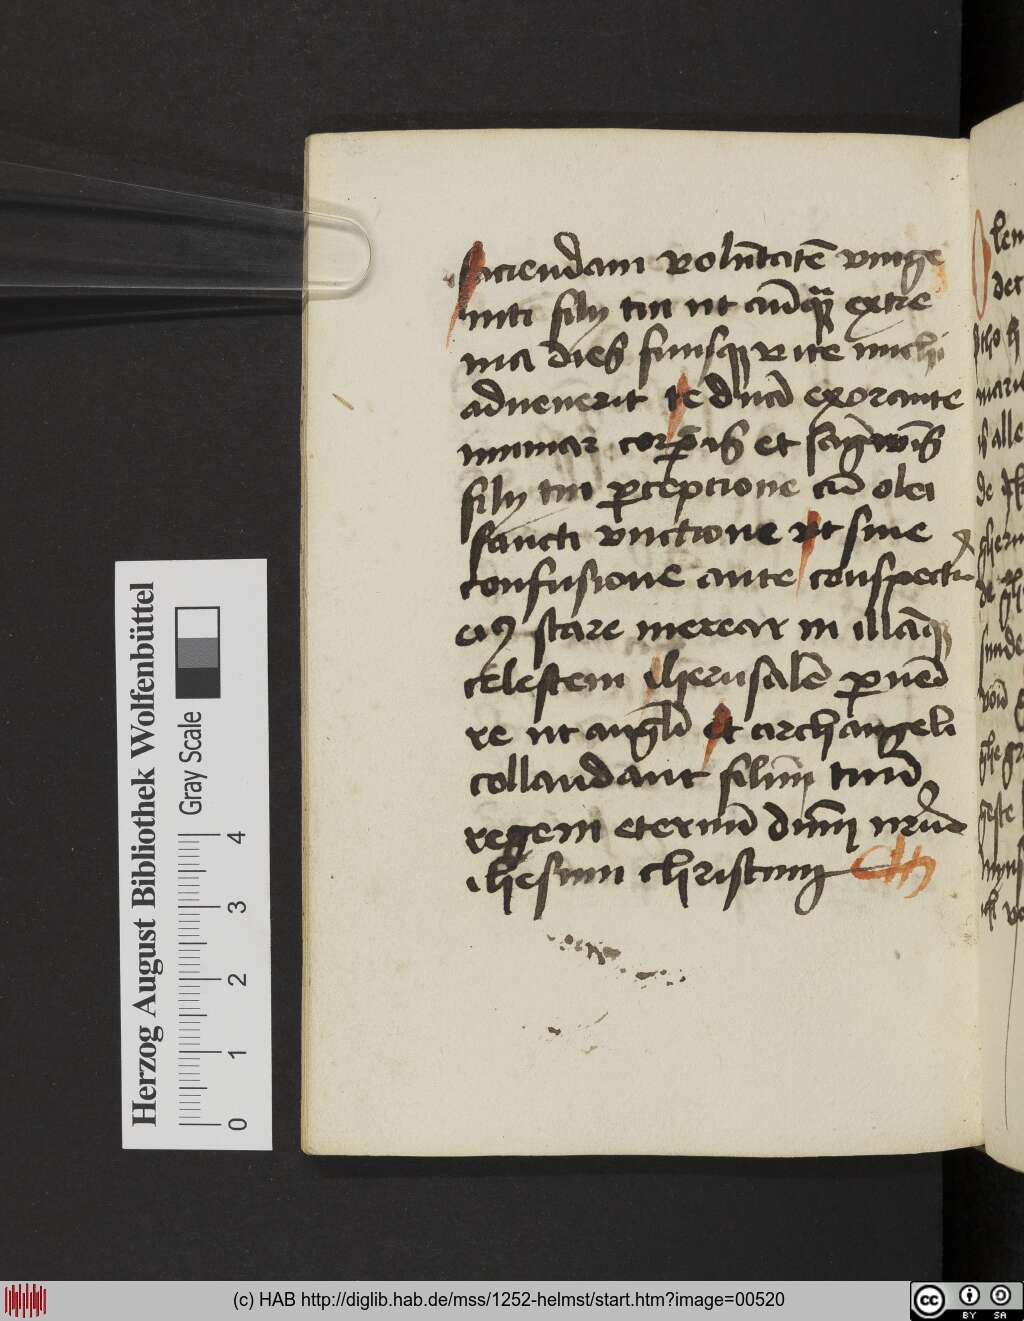 faciendam volūtatē vnige
niti filij tui ut cūqꝫ extre
ma dies finisqꝫ vite michi
advenerit te dnā exorante
muniar corꝑis et sāgwīs
filij tui ꝑceptione cū olei
sancti vnctione ut sine
confusione ante conspectū
eiꝰ stare merear in illāqꝫ
celestem iherusalē ꝑuēi
re ut angeli et archangeli
collaudant filium tuū
regem eternū dnm nrūm
ihesum christum
Herzog August Bibliothek Wolfenbüttel
Gray Scale
0 1 2 3 4
(c) HAB http://diglib.hab.de/mss/1252-helmst/start.htm?image=00520
cc BY SA